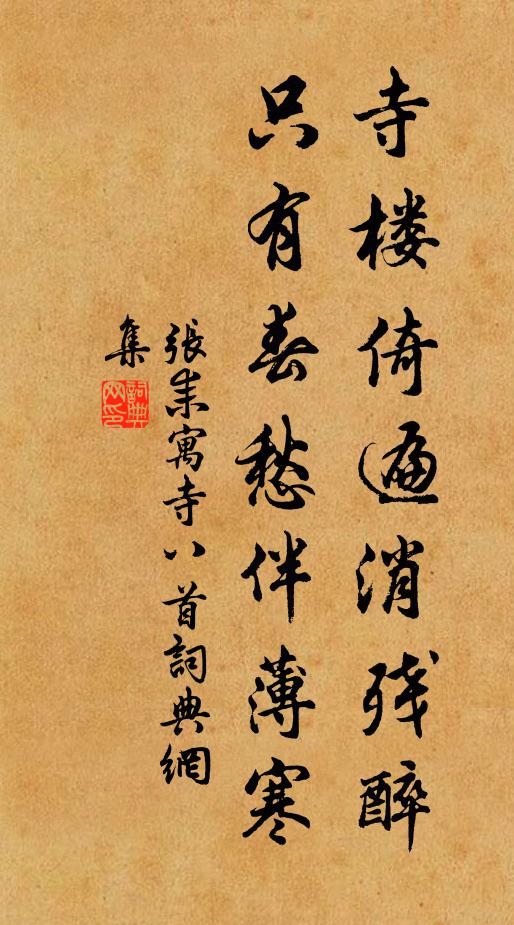 寺楼倚遍消残醉
只有春愁伴薄寒
张耒寓寺八首詞典網
集
詞典網印